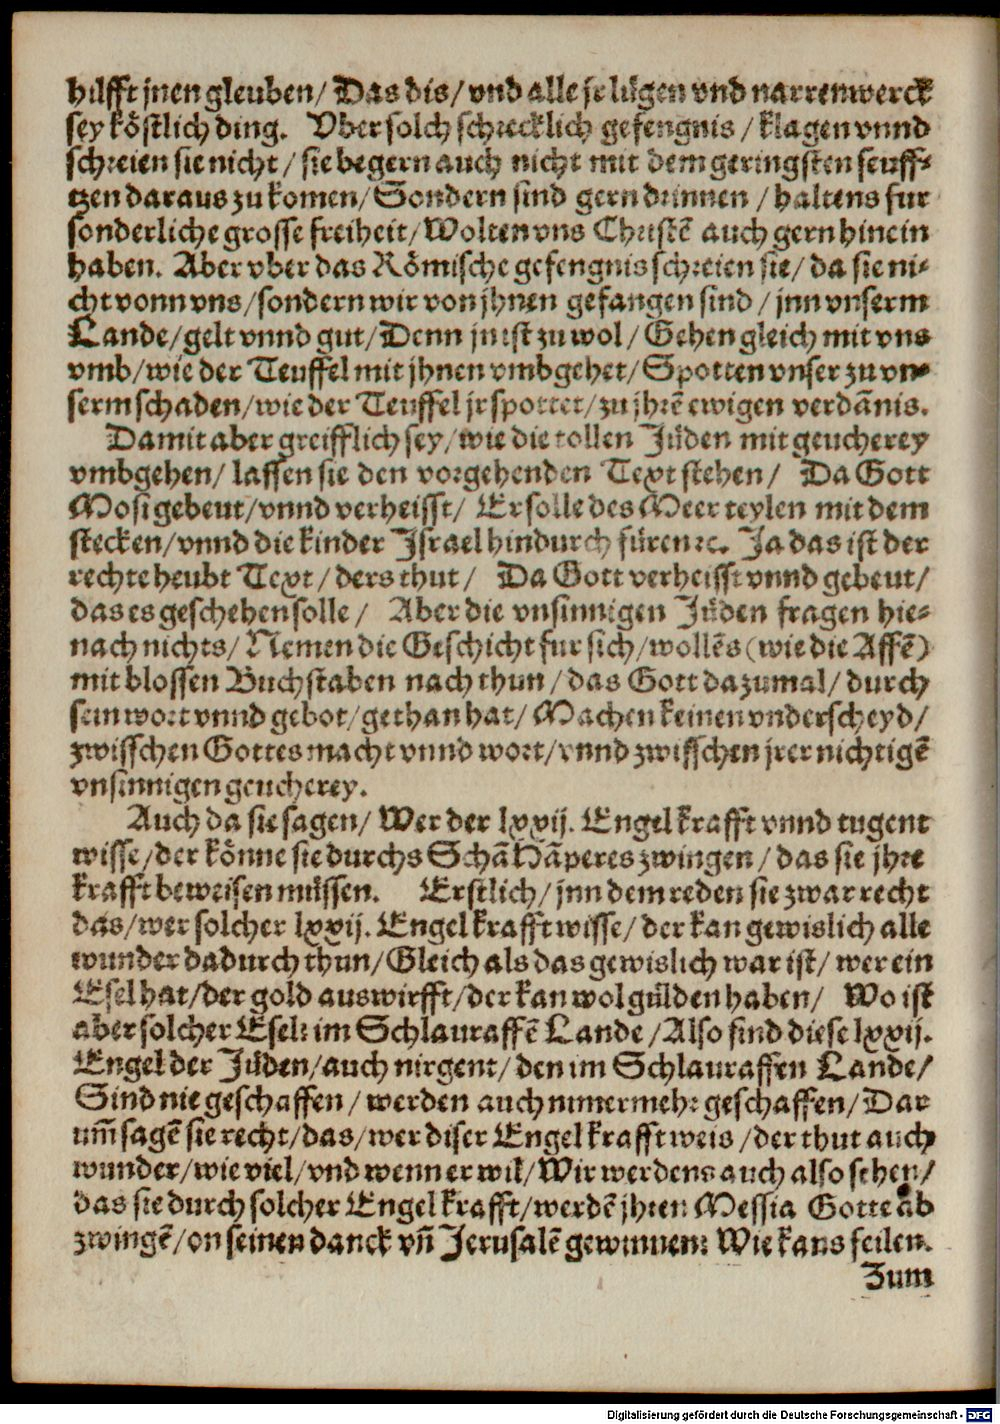 hilfft jnen gleuben/ Das dis/ vnd alle jr lügen vnd narrenwerck
sey köstlich ding. Vber solch schrecklich gefengnis / klagen vnnd
schreien sie nicht / sie begern auch nicht mit dem geringsten seuff-
tzen daraus zu komen/ Sondern sind gern drinnen / haltens fur
sonderliche grosse freiheit/ Wolten vns Christē auch gern hinein
haben. Aber vber das Römische gefengnis schreien sie/ da sie ni-
cht vonn vns/ sondern wir von jhnen gefangen sind / jnn vnserm
Lande/ gelt vnnd gut/ Denn jn ist zu wol/ Gehen gleich mit vns
vmb/ wie der Teuffel mit jhnen vmbgehet/ Spotten vnser zu vn-
serm schaden/ wie der Teuffel jr spottet/ zu jhrē ewigen verdānis.
Damit aber greifflich sey/ wie die tollen Jüden mit geucherey
vmbgehen/ lassen sie den vorgehenden Text stehen/ Da Gott
Mosi gebeut/ vnnd verheisst/ Er solle des Meer teylen mit dem
stecken/ vnnd die kinder Jsrael hindurch füren ⁊c. Ja das ist der
rechte heubt Text/ ders thut/ Da Gott verheisst vnnd gebeut/
das es geschehen solle/ Aber die vnsinnigen Jüden fragen hie-
nach nichts/ Nemen die Geschicht fur sich/ wollēs (wie die Affē)
mit blossen Buchstaben nach thun / das Gott dazumal/ durch
sein wort vnnd gebot/ gethan hat/ Machen keinen vnderscheyd/
zwisschen Gottes macht vnnd wort/ vnnd zwisschen jrer nichtigē
vnsinnigen geucherey.
Auch da sie sagen/ Wer der lxxij. Engel krafft vnnd tugent
wisse/ der könne sie durchs Schā Hāperes zwingen/ das sie jhre
krafft beweisen müssen. Erstlich/ jnn dem reden sie zwar recht
das/ wer solcher lxxij. Engel krafft wisse/ der kan gewislich alle
wunder dadurch thun/ Gleich als das gewislich war ist/ wer ein
Esel hat/ der gold auswirfft/ der kan wol gülden haben/ Wo ist
aber solcher Esel: im Schlauraffē Lande / Also sind diese lxxij.
Engel der Jüden/ auch nirgent/ den im Schlauraffen Lande/
Sind nie geschaffen / werden auch nimermehr geschaffen/ Dar
um̄ sagē sie recht/ das/ wer diser Engel krafft weis / der thut auch
wunder/ wie viel/ vnd wenn er wil/ Wir werdens auch also sehen/
das sie durch solcher Engel krafft/ werdē jhren Messia Gotte ab
zwingē/ on seinen danck vn̄ Jerusalē gewinnen: Wie kans feilen.
Zum
Digitalisierung gefördert durch die Deutsche Forschungsgemeinschaft - DFG